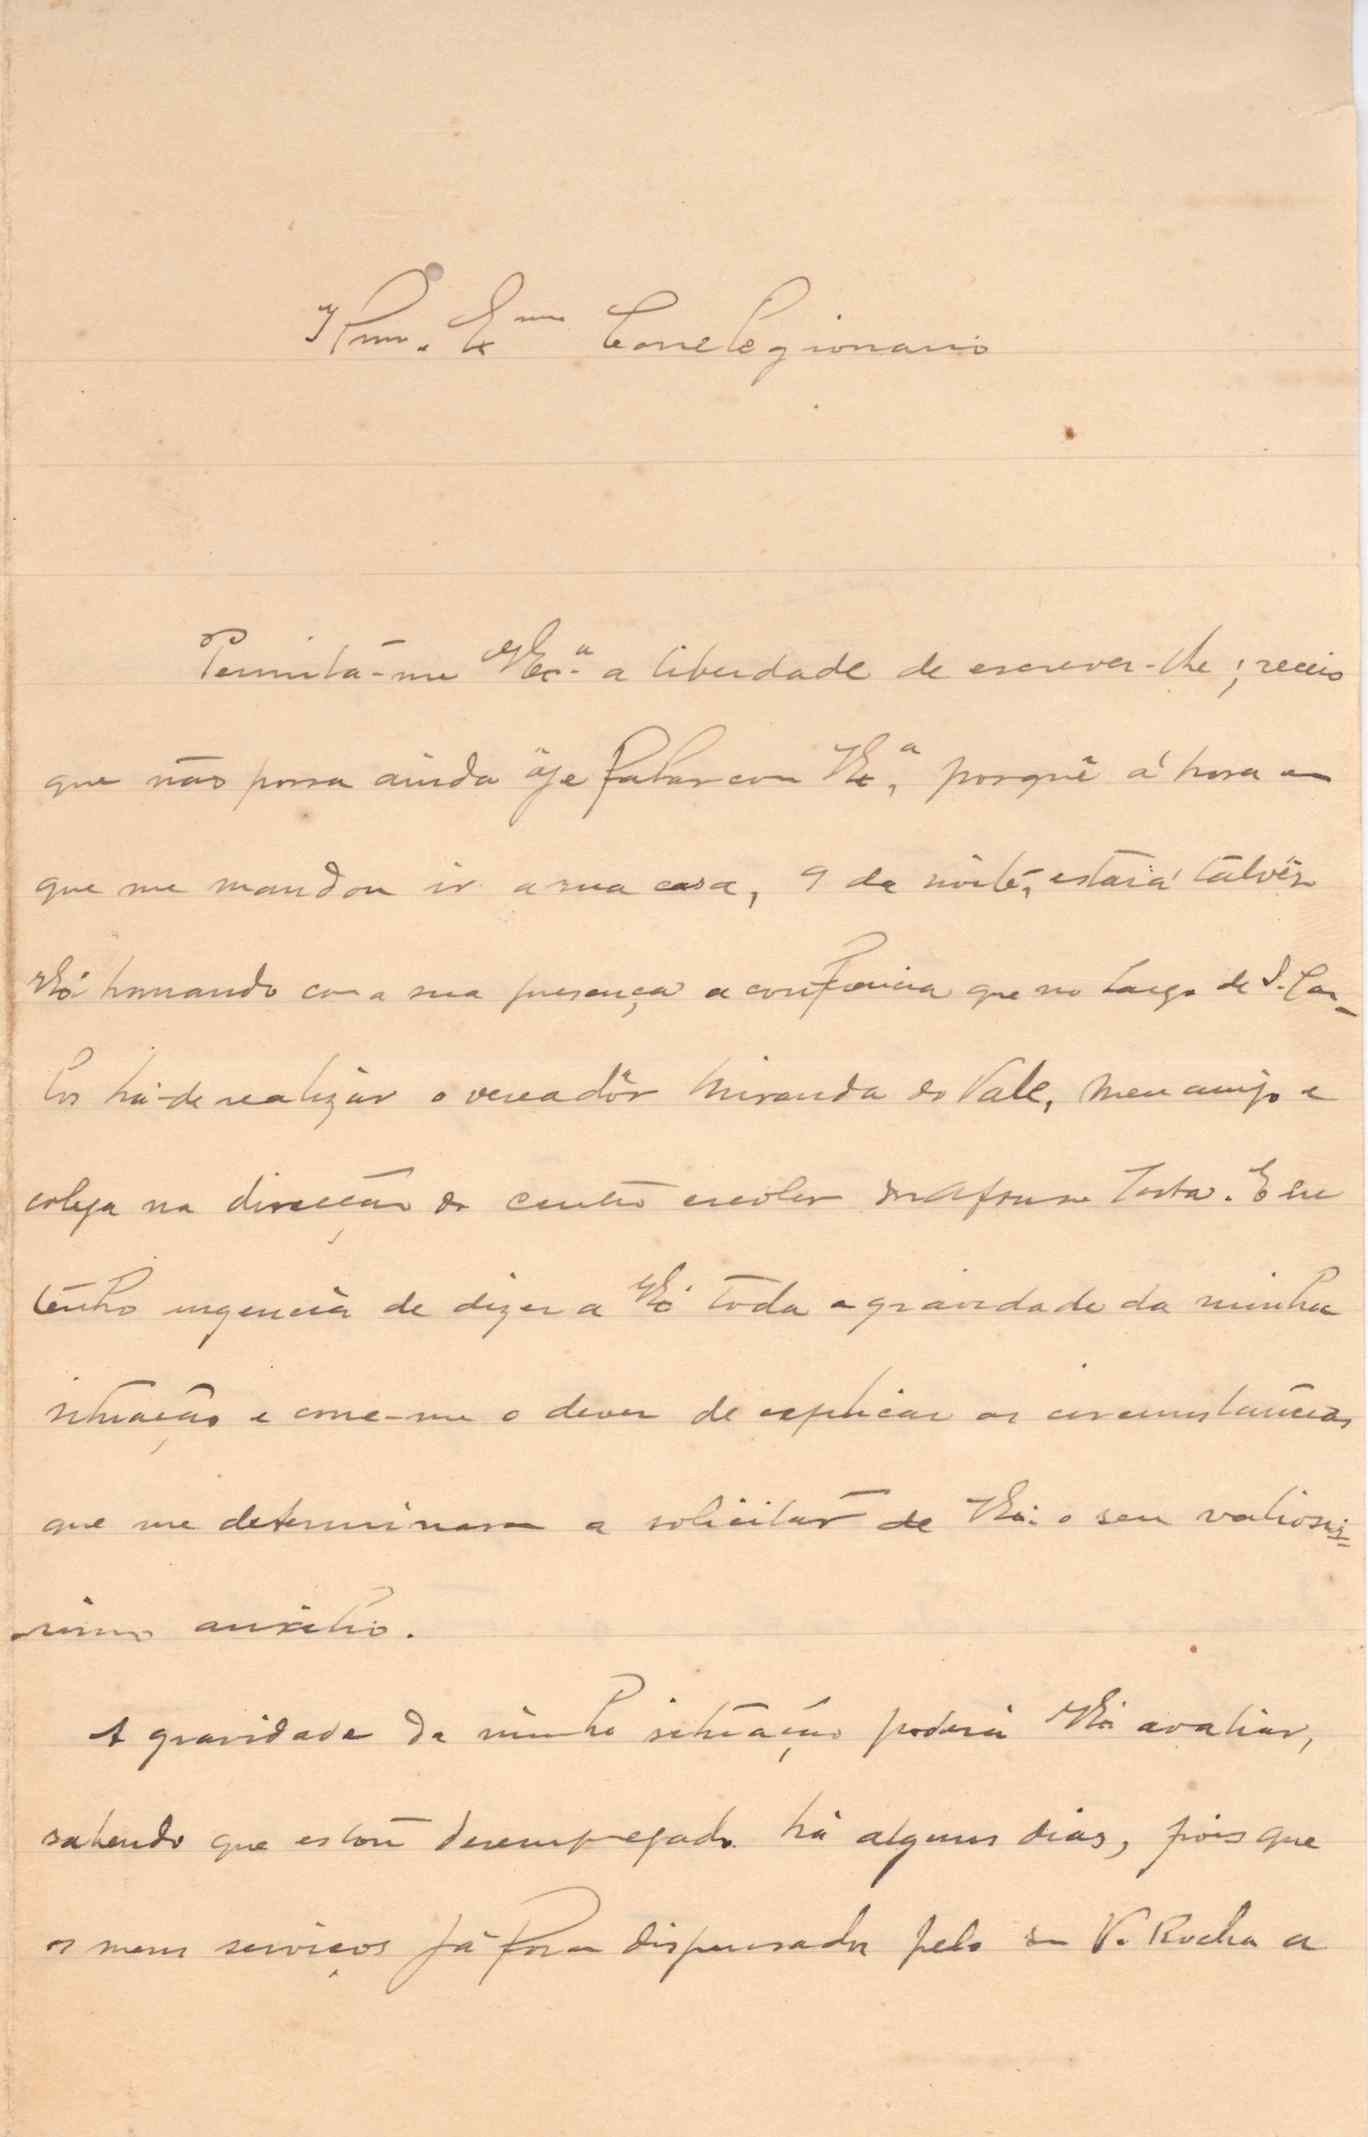 Illmo. Exmo Correlegionario
Permita-me V.Ex.ª a liberdade de escrever-lhe; receio
que não possa ainda ôje falar com V.Ex.ª, porquê á hora em
que me mandou ir a sua casa, 9 da noite, estará talvês
V.Ex.ª honrando com a sua presença a conferência que no Largo de S. Car-
los há-de realizár o vereadôr Miranda do Vale, meu amigo e
colega na direcção do centro escolar dr Afonso Costa. E eu
tenho urgencia de dizer a V.Ex.ª toda a gravidade da minha
situação e corre-me o dever de explicar as circumstancias
que me determinaram a solicitar de V.Ex.ª o seu valiosis-
simo auxilio.
A gravidade da minha situação poderá V.Ex.ª avaliar,
sabendo que estou desempregado há alguns dias, pois que
os meus serviços já foram dispensados pelo sr V. Rocha a